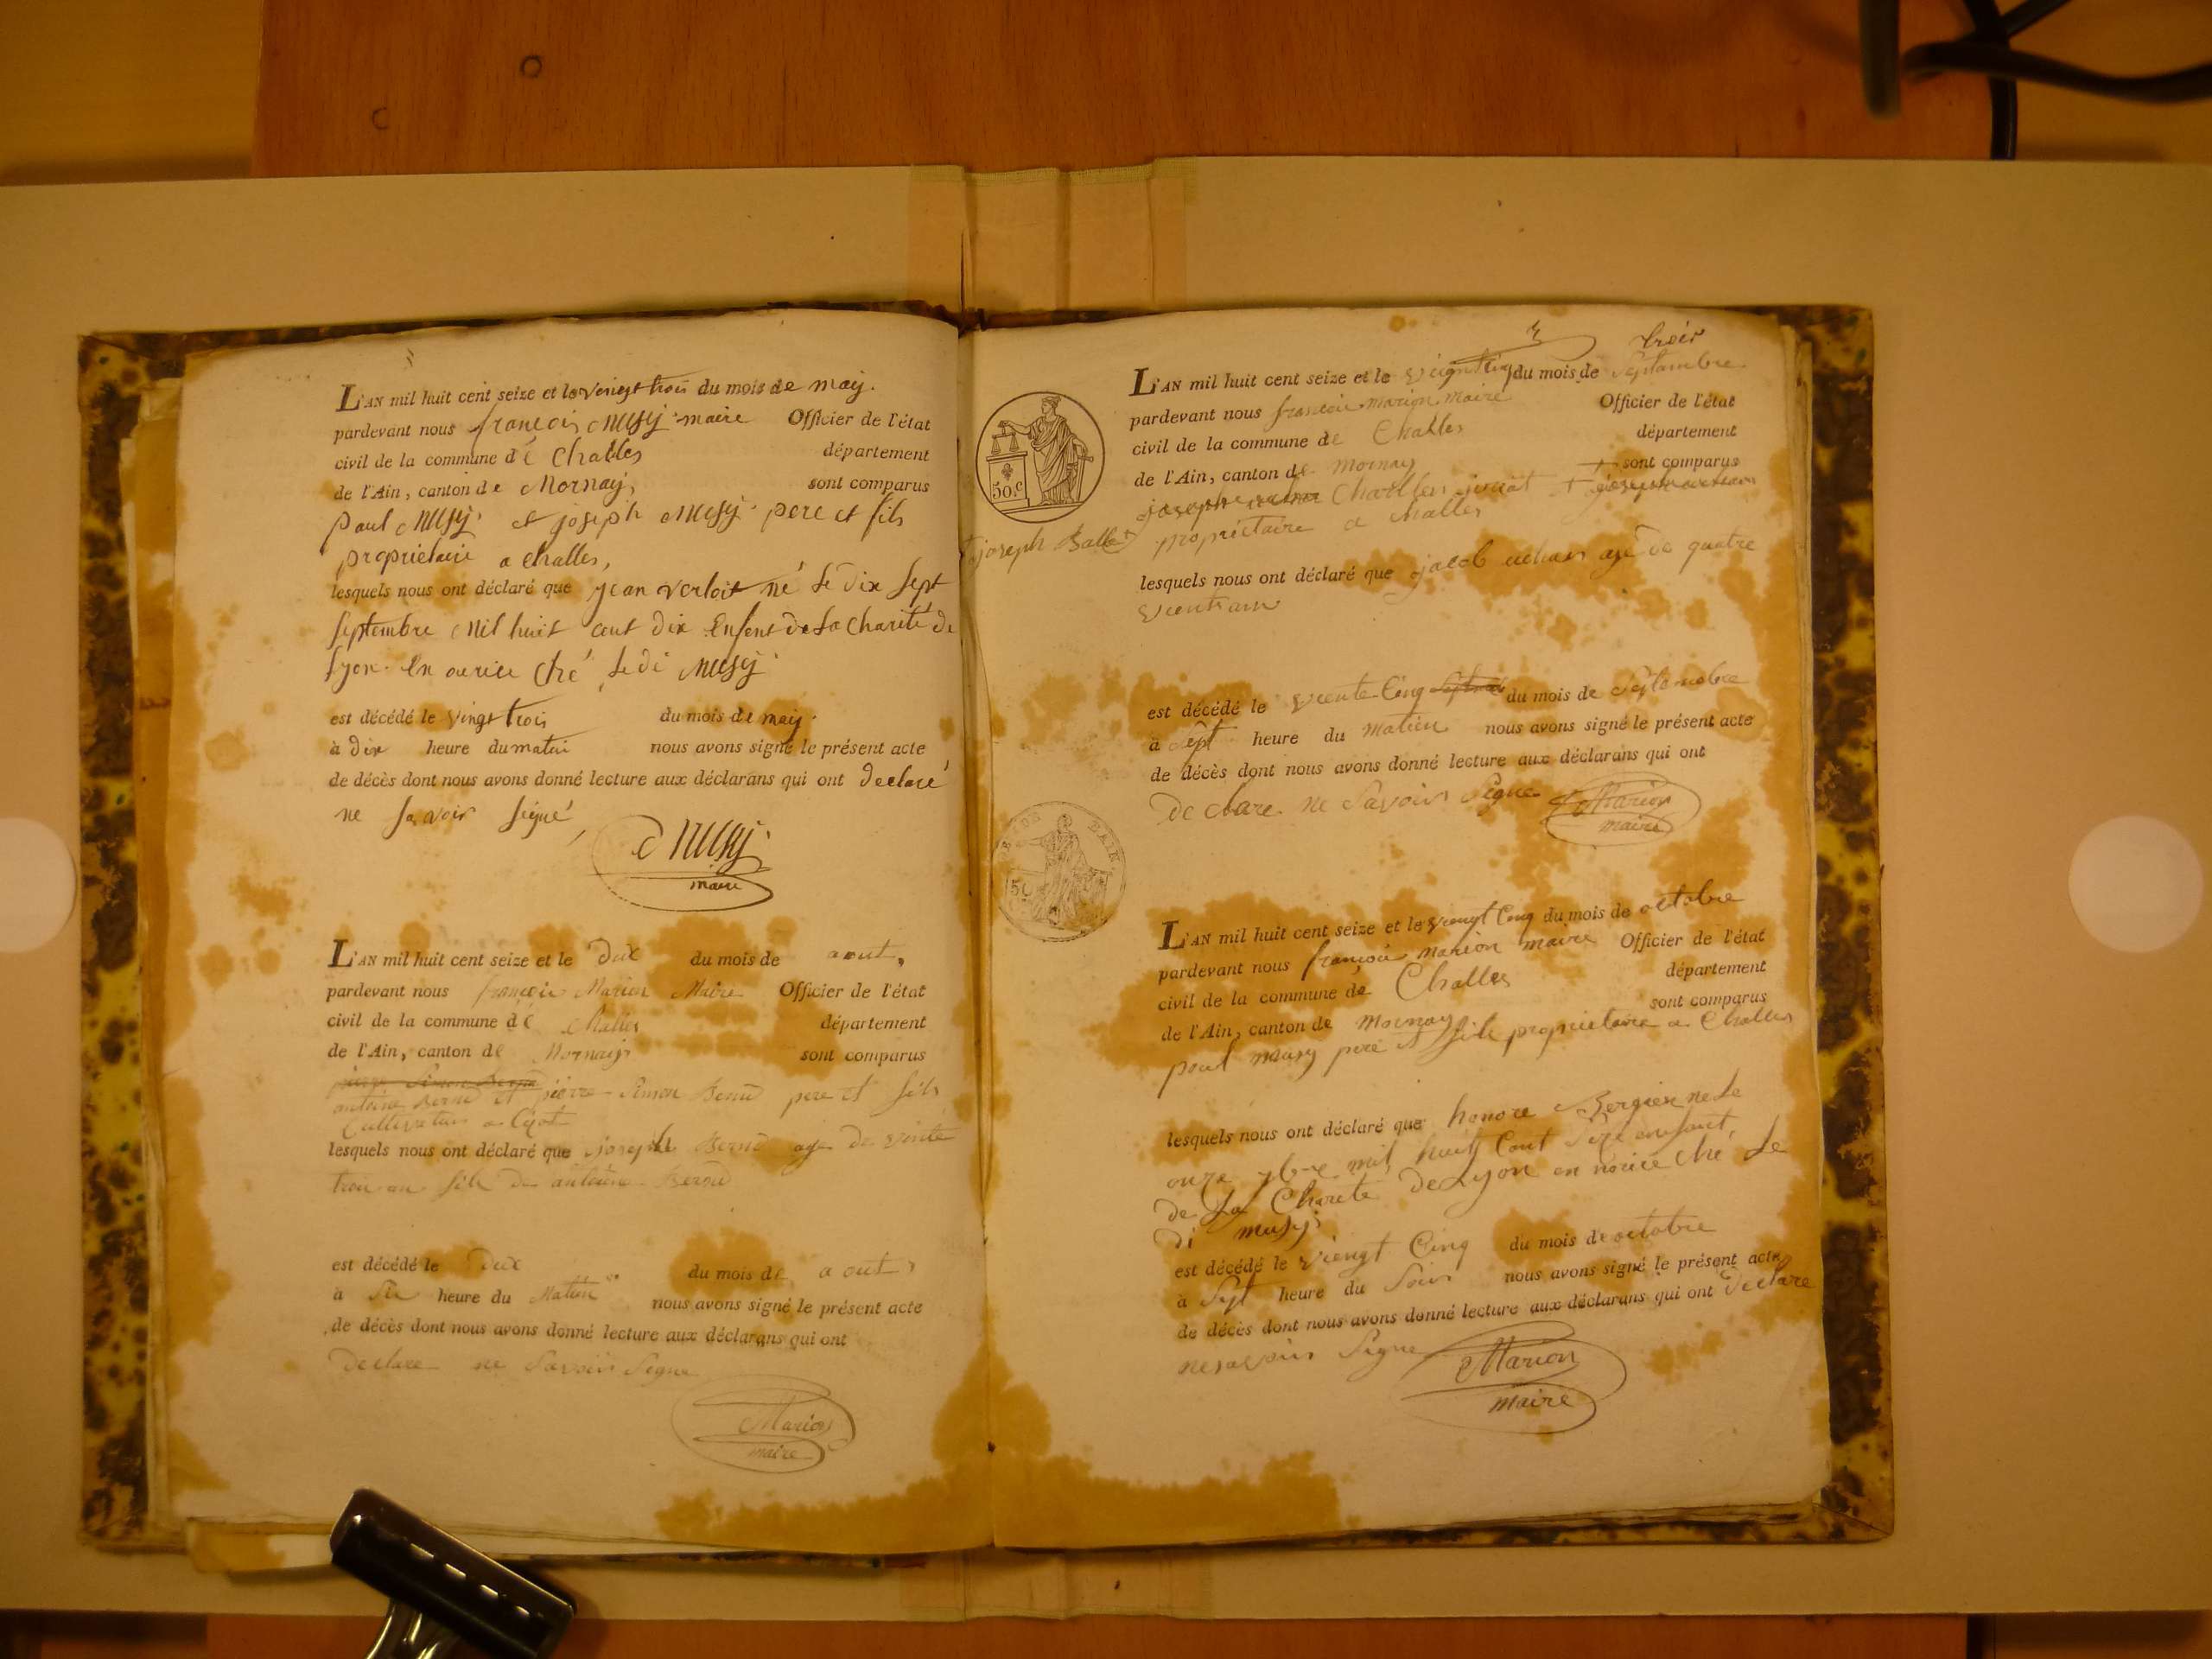 L'AN mil huit cent seize et le vingt trois du mois de may.
pardevant nous françois Musy maire Officier de l'état
civil de la commune de Challes département
de l'Ain, canton de Mornay, sont comparus
paul Musy et joseph Musy pere et fils
propriétaire a challes,
lesquels nous ont déclaré que jean verloit né le dix sept
septembre mil huit cent dix Enfent de La Charité de
Lyon. En ourice ché ledi Musy
est décédé le vingt trois du mois de may.
à dix heure du matin nous avons signé le présent acte
de décès dont nous avons donné lecture aux déclarans qui ont declaré
ne savoir signé,
Musy
maire
L'AN mil huit cent seize et le dix du mois de aout,
pardevant nous françois Marion Maire Officier de l'état
civil de la commune de challes département
de l'Ain, canton de Mornay sont comparus
pierre Simon
antoine et pierre Simon pere et fils
Cultivateur a
lesquels nous ont déclaré que joseph age de vinte
trois an fils de antoine
est décédé le dix du mois de aout,
à heure du Matin nous avons signé le présent acte
de décès dont nous avons donné lecture aux déclarans qui ont
declare ne Savoir Signe
Marion
maire
3
trois
L'AN mil huit cent seize et le du mois de Septambre
pardevant nous francois marion maire Officier de l'état
civil de la commune de Challes département
de l'Ain, canton de mornay + sont comparus
joseph Charles +
+ joseph Ballet propriétaire a challes
lesquels nous ont déclaré que jacob agé de quatre
50.c
est décédé le viente Cinq du mois de Septembre
à sept heure du matien nous avons signé le présent acte
de décès dont nous avons donné lecture aux déclarans qui ont
declare ne Savoir Signe Marion
maire
L'AN mil huit cent seize et le viengt Cinq du mois de octobre
pardevant nous françois marion maire Officier de l'état
civil de la commune de Challes département
de l'Ain, canton de mornay sont comparus
poul musy pere et fils propriétaire a Challes
lesquels nous ont déclaré que honore Bergier ne Le
onze 7b-e mil huit Cent enfant
de La Charité de Lyon en nource ché Le
di musy
est décédé le viengt Cinq du mois de octobre
à Sept heure du Soir nous avons signé le présent acte
de décès dont nous avons donné lecture aux déclarans qui ont declare
ne savoir Signe
Marion
maire